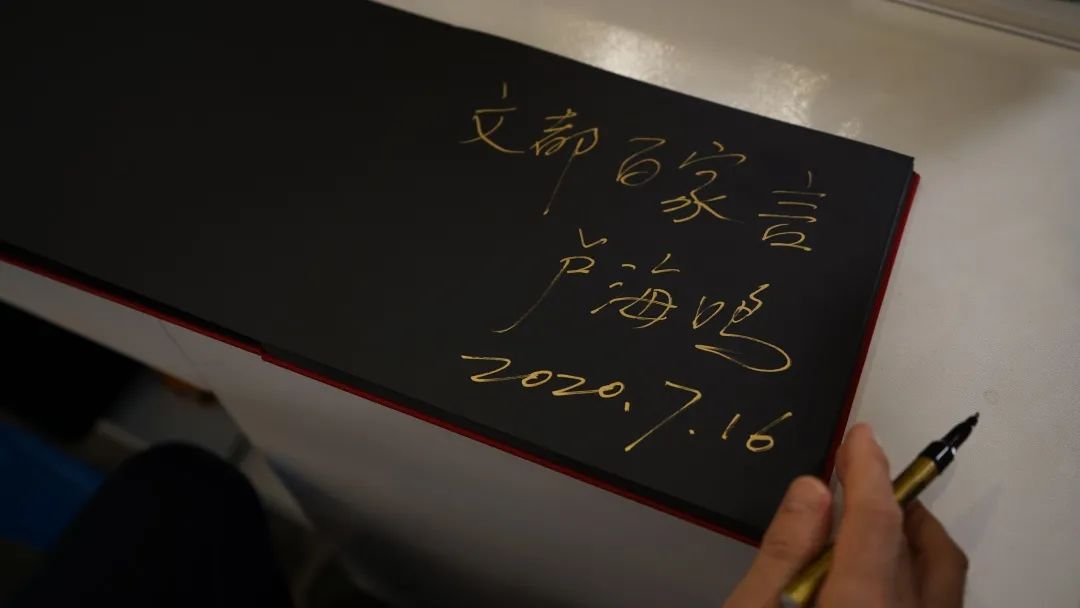 文都百家言
卢海鸣
2020.7.16